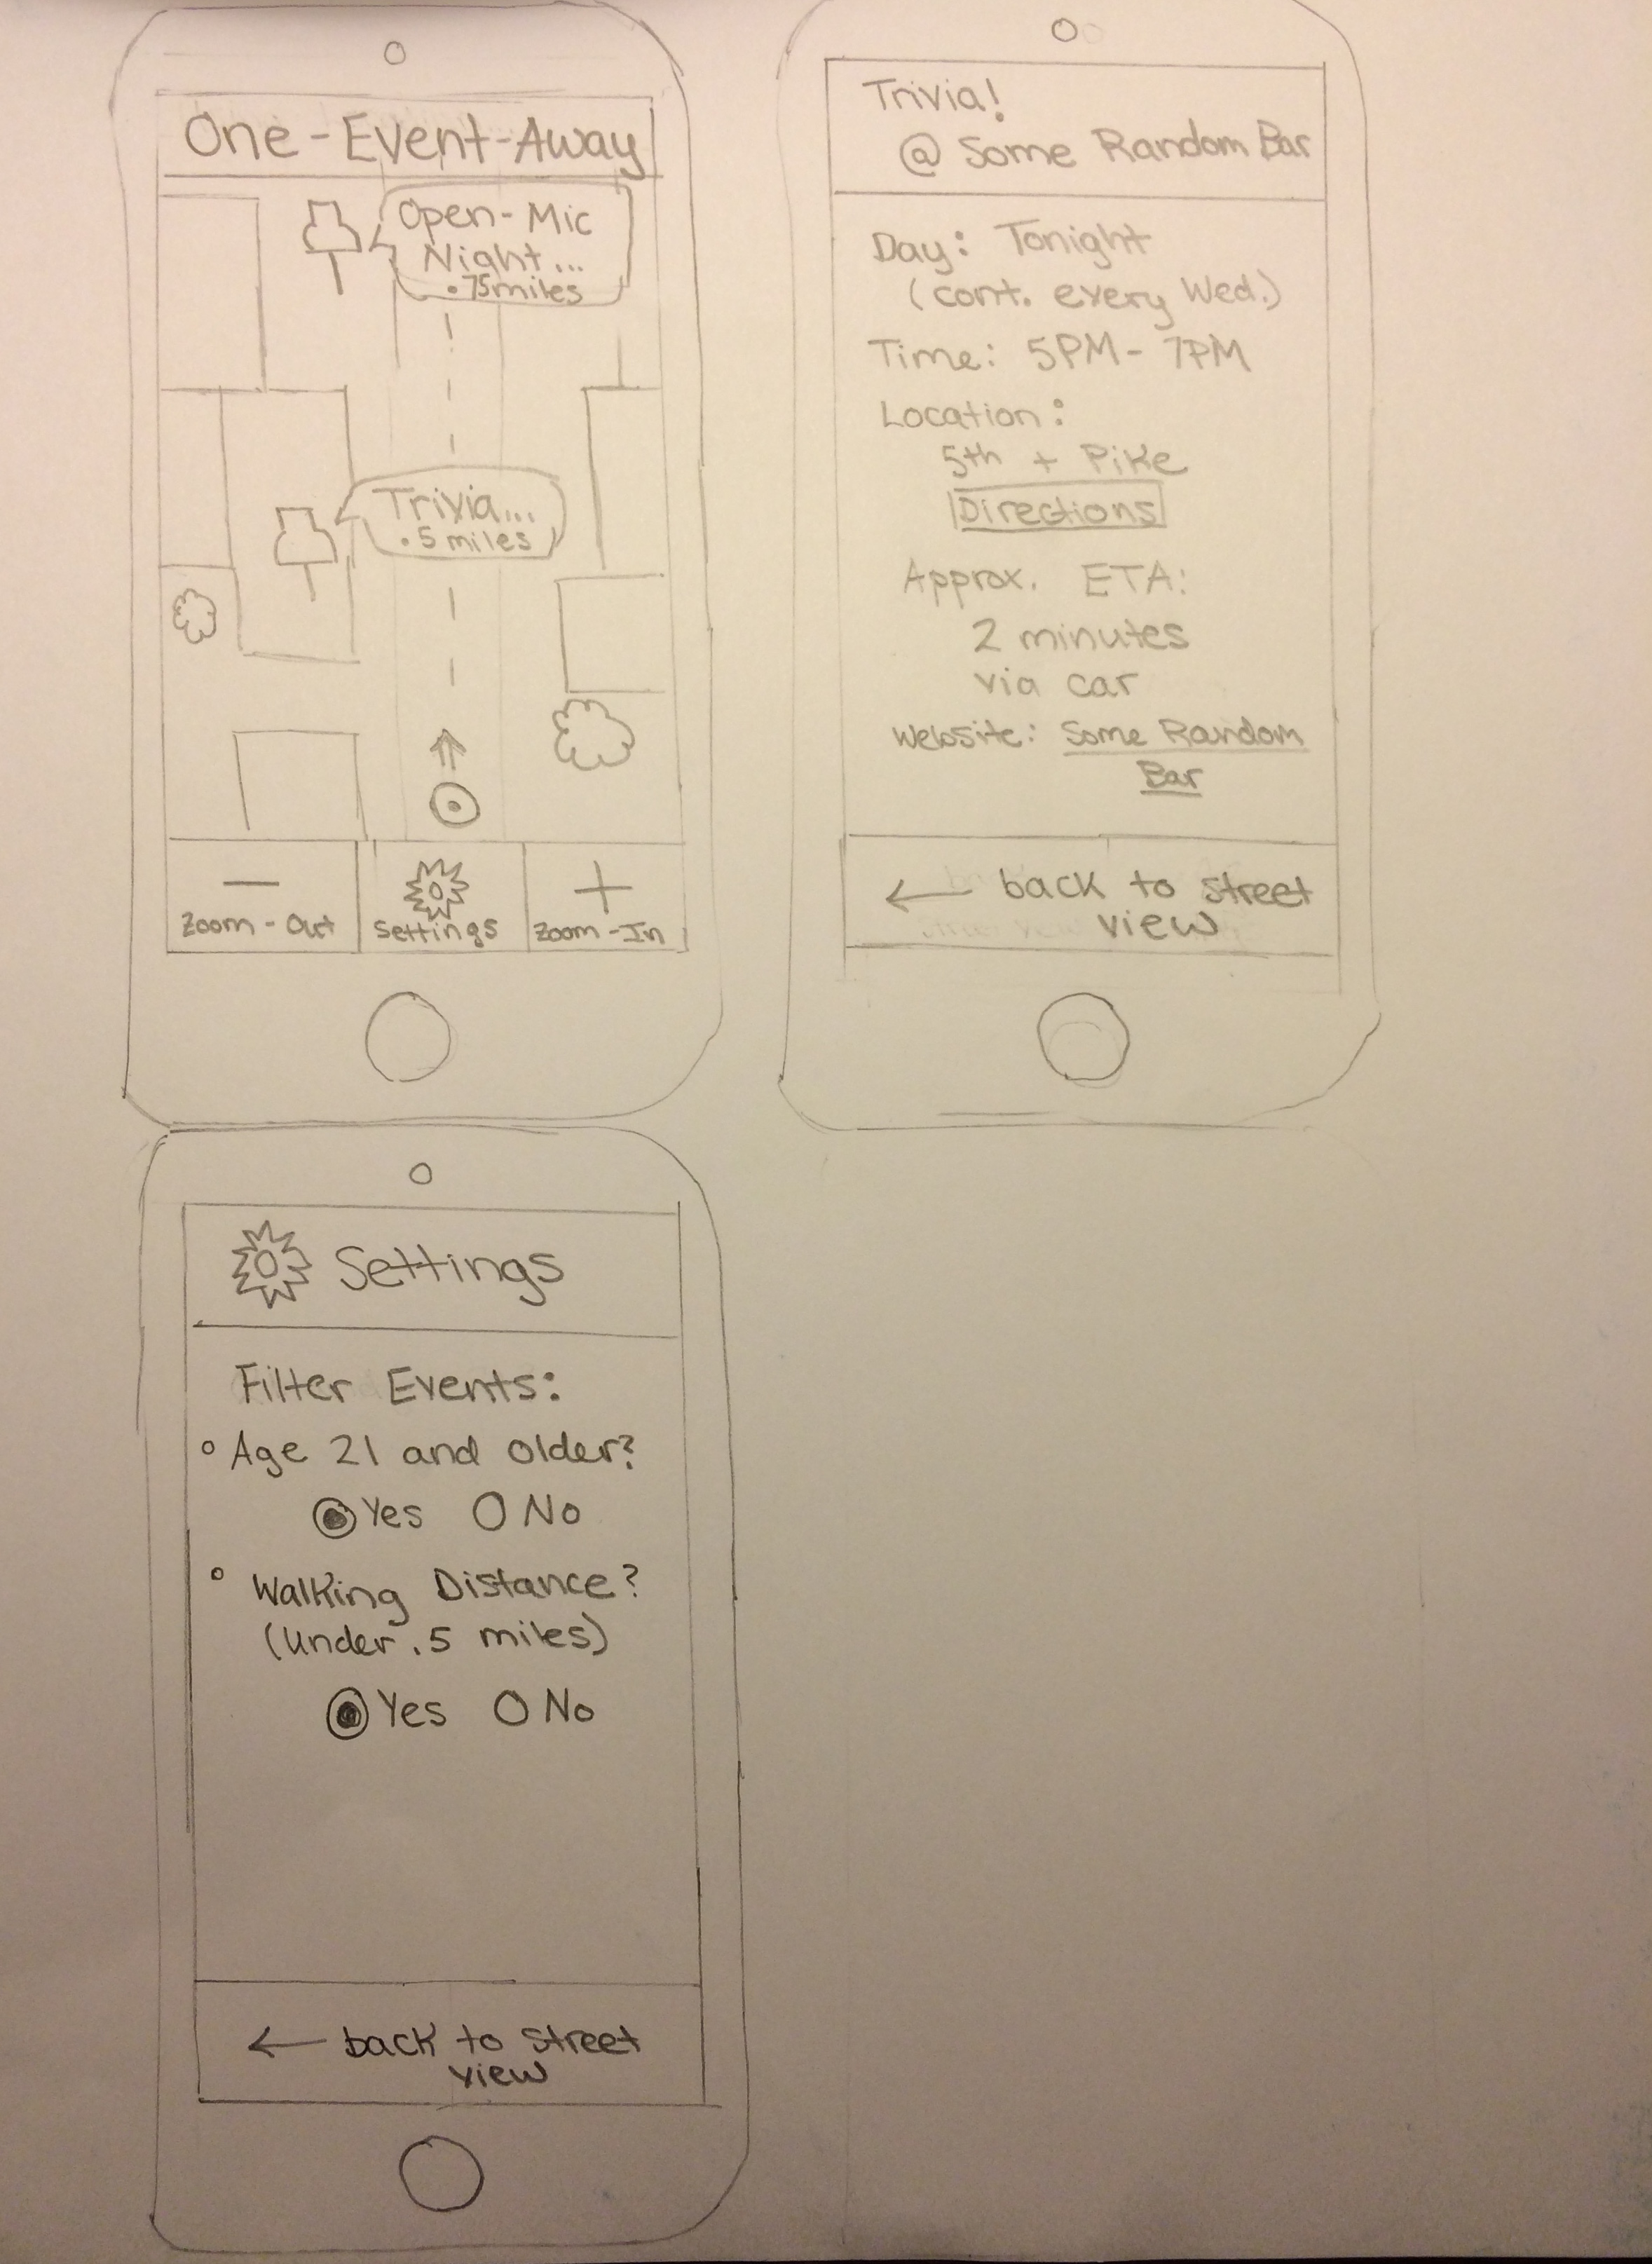 One-Event-Away
Open-Mic
Night...
.75miles
Trivia...
.5 miles
Zoom-Out
Settings
Zoom-In
Trivia!
@ Some Random Bar
Day: Tonight
(cont. every Wed.)
Time: 5PM- 7PM
Location:
5th + Pike
Directions
Approx. ETA:
2 minutes
via car
Website: Some Random
Bar
← back to street
view
Settings
Filter Events:
Age 21 and older?
Yes No
Walking Distance?
(under .5 miles)
Yes No
← back to street
view